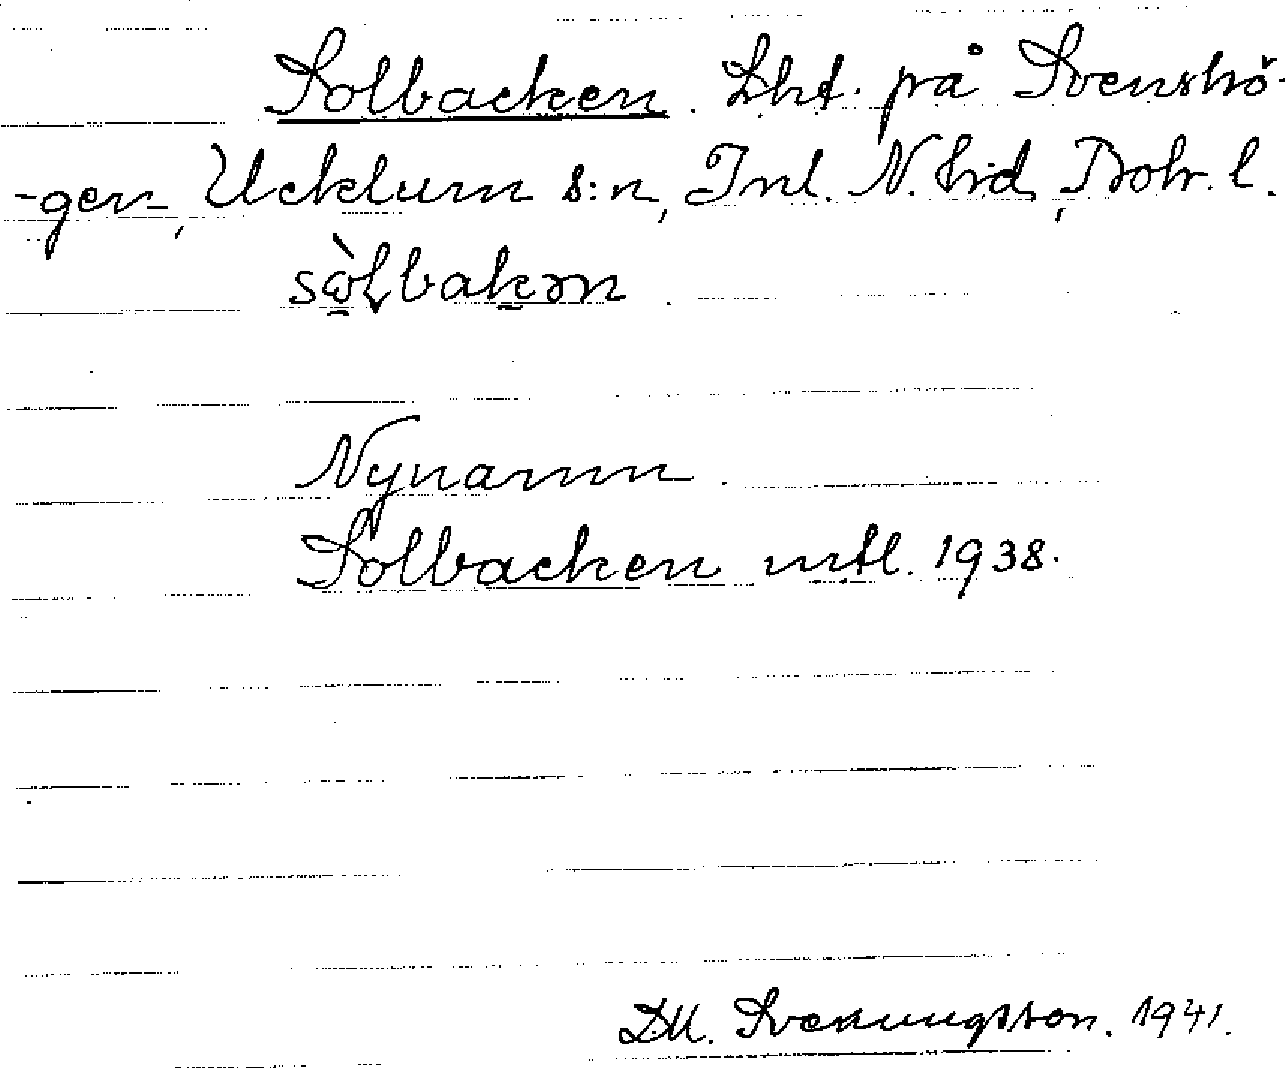 Solbacken. Lht. på Svenshö-
-gen, Ucklum s:n, Inl. N. hd, Boh. l.
sòlbakən
Nynamn.
Solbacken mtl. 1938.
D.M. Svenungsson. 1941.